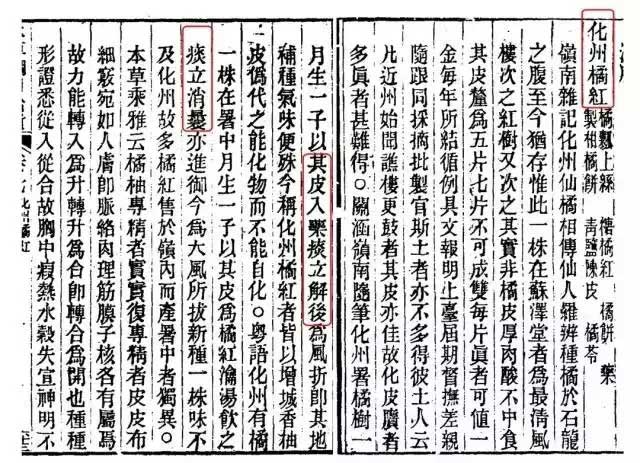 化州橘紅 橘瓤上絲 橘紅 橘餅 藥製柑橘餅 青鹽陳皮 橘苓
嶺南雜記化州仙橘相傳仙人羅辨種橘於石龍
之腹至今猶存惟此一株在蘇澤堂者為最清風
樓次之紅樹又次之其實非橘皮厚肉酸不中食
其皮釐為五片七片不可成雙每片眞者可值一
金每年所結循例具文報明上臺屆期督撫差親
隨跟同採摘批製官斯土者亦不多得彼土人云
凡近州始聞譙樓更鼓者其皮亦佳故化皮贋者
多眞者甚難得○關涵嶺南隨筆化州署橘樹一
月生一子以其皮入藥痰立解後為風折卽其地
補種氣味便殊今稱化州橘紅者皆以增城香柚
皮僞代之能化物而不能自化○粵語化州有橘
一株在署中月生一子以其皮為橘紅瀹湯飲之
痰立消曩亦進御今為大風所拔新種一株味不
及化州故多橘紅售於嶺內而產署中者獨異○
本草乘雅云橘柚專精者實實復專精者皮皮布
細竅宛如人膚卽脈絡肉理筋膜子核各有屬焉
故力能轉入為升轉升為合卽轉合為開也種種
形證悉從入從合故胸中瘕熱水穀失宣神明不